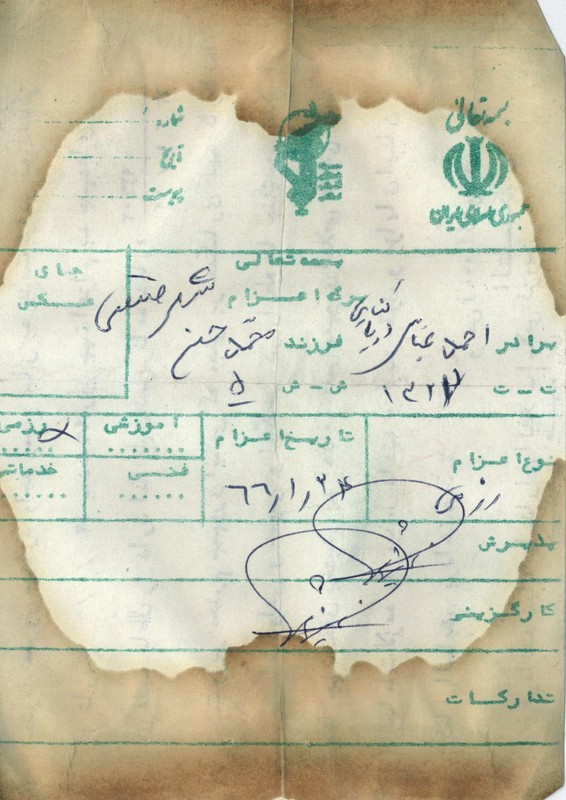 بسمه تعالی
جمهوری اسلامی ایران
شماره
تاریخ
پیوست
بسمه تعالی
برگ اعزام
جای
عکس
برادر احمد عباسی فرزند محمد حسن
ت - ت ۱۳۲۷ ش - ش ۵
نوع اعزام رزمی
تاریخ اعزام ۶۶/۱/۲۴
آموزشی
رزمی
فنی
خدماتی
پذیرش
کارگزینی
تدارکات